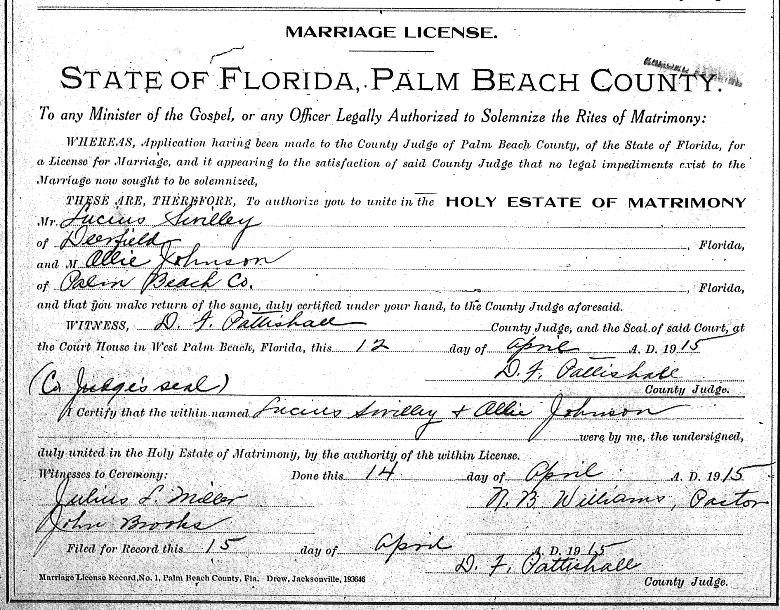 MARRIAGE LICENSE.
STATE OF FLORIDA, PALM BEACH COUNTY.
To any Minister of the Gospel, or any Officer Legally Authorized to Solemnize the Rites of Matrimony:
WHEREAS, Application having been made to the County Judge of Palm Beach County, of the State of Florida, for
a License for Marriage, and it appearing to the satisfaction of said County Judge that no legal impediments exist to the
Marriage now sought to be solemnized,
THESE ARE, THEREFORE, To authorize you to unite in the HOLY ESTATE OF MATRIMONY
Mr. Lucius Smilley
of Deerfield, Florida,
and M Allie Johnson
of Palm Beach Co., Florida,
and that you make return of the same, duly certified under your hand, to the County Judge aforesaid.
WITNESS, D. F. Pattishall County Judge, and the Seal of said Court, at
the Court House in West Palm Beach, Florida, this 12 day of April A. D. 1915
D. F. Pattishall
(Co Judge's seal) County Judge.
I Certify that the within named Lucius Smilley & Allie Johnson
were by me, the undersigned,
duly united in the Holy Estate of Matrimony, by the authority of the within License.
Witnesses to Ceremony: Done this 14 day of April A. D. 1915
Julius L. Miller N. B. Williams, Pastor
John Brooks
Filed for Record this 15 day of April A. D. 1915
D. F. Pattishall
Marriage License Record, No. 1, Palm Beach County, Fla. Drew, Jacksonville, 193646 County Judge.